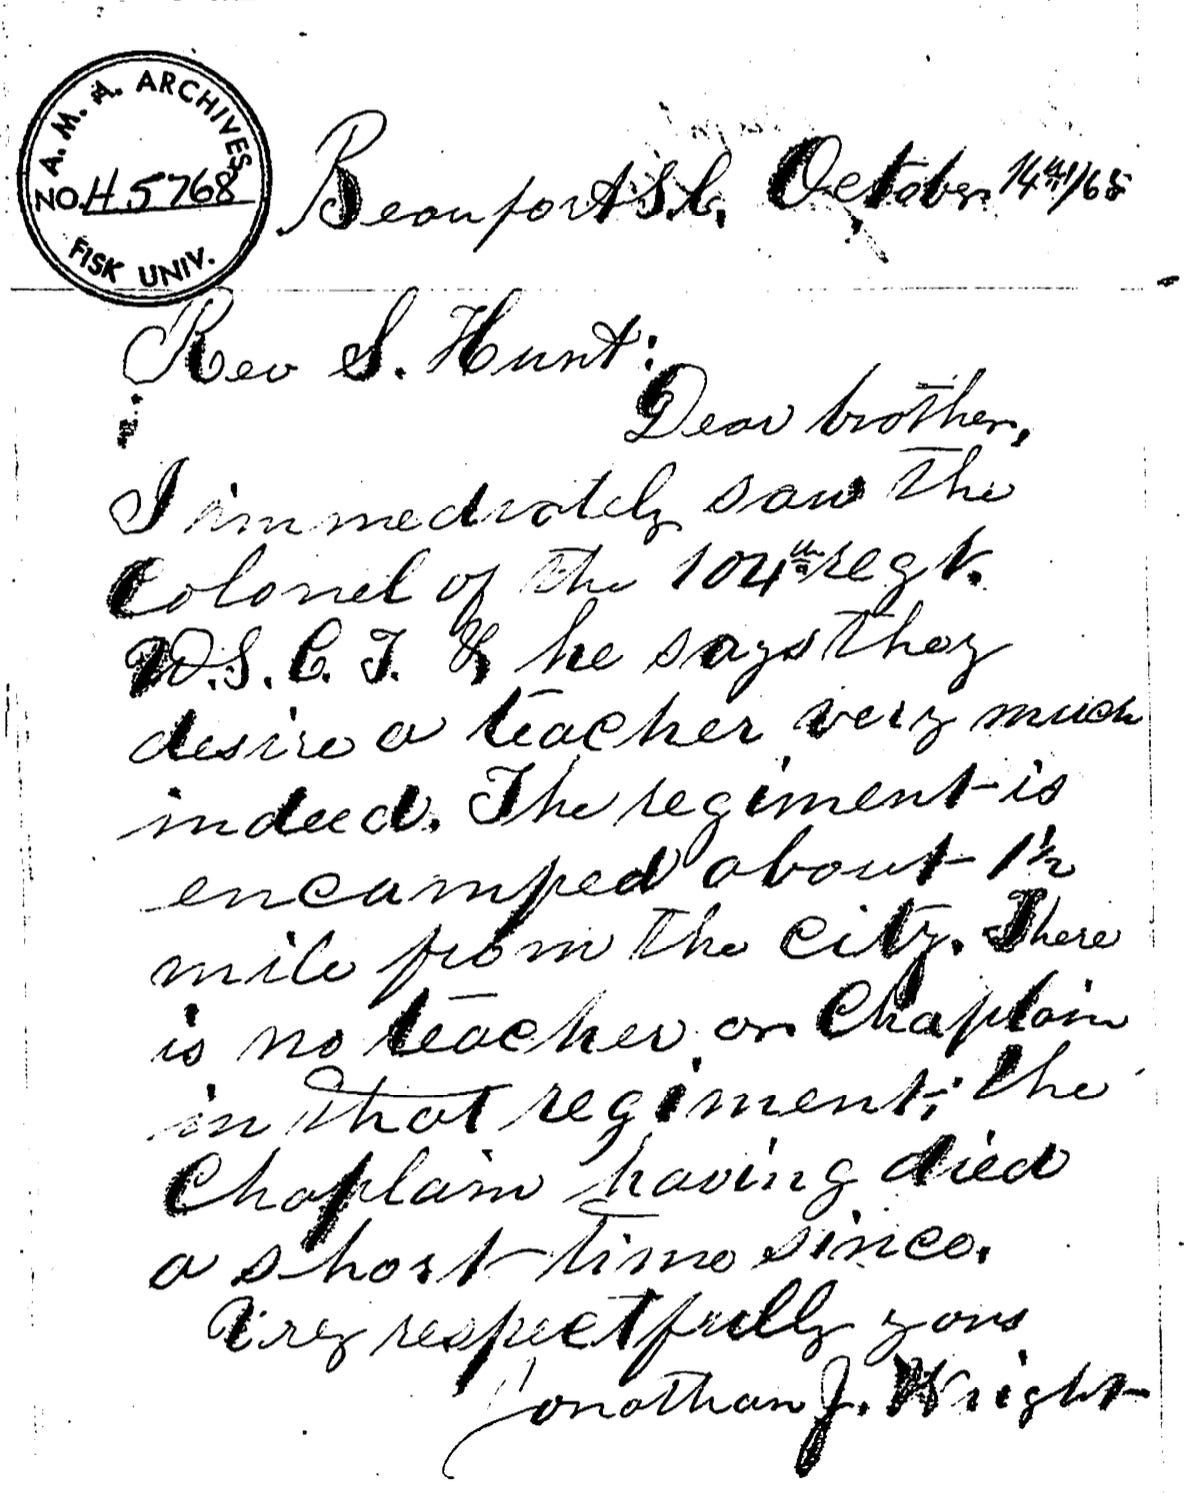 A. M. A. ARCHIVES
NO. H 5768
FISK UNIV.
Beaufort S.C. October 14th/65
Rev S. Hunt:
Dear brother,
I immediately saw the
Colonel of the 104th regt.
U.S.C.T. & he says they
desire a teacher very much
indeed. The regiment is
encamped about 1 1/2
mile from the city. There
is no teacher or Chaplain
in that regiment; the
Chaplain having died
a short time since.
Very respectfully yours
Jonathan J. Wright